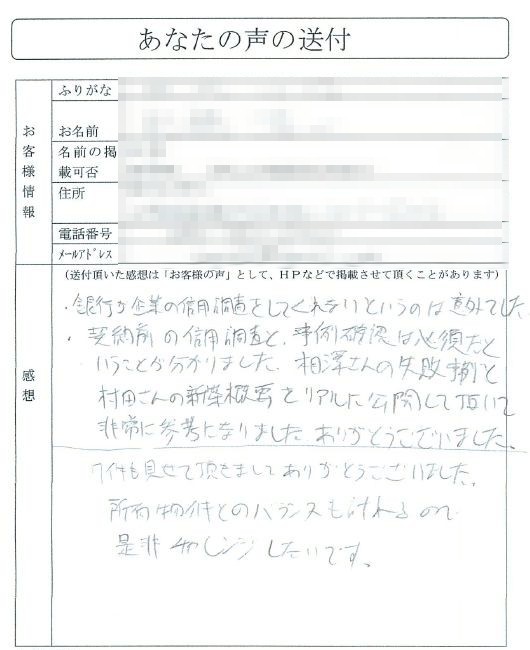 あなたの声の送付
お客様情報
ふりがな
お名前
名前の掲
載可否
住所
電話番号
ﾒｰﾙｱﾄﾞﾚｽ
感想
(送付頂いた感想は「お客様の声」として、HPなどで掲載させて頂くことがあります)
・銀行が企業の信用調査をしてくれないというのは意外でした
・契約前の信用調査と、事例確認は必須だと
いうことが分かりました。相澤さんの失敗例と
村田さんの新築概要をリアルに公開して頂いて
非常に参考になりました ありがとうございました。
物件も見せて頂きましてありがとうございました。
所有物件とのバランスも計れるので
是非チャレンジしたいです。